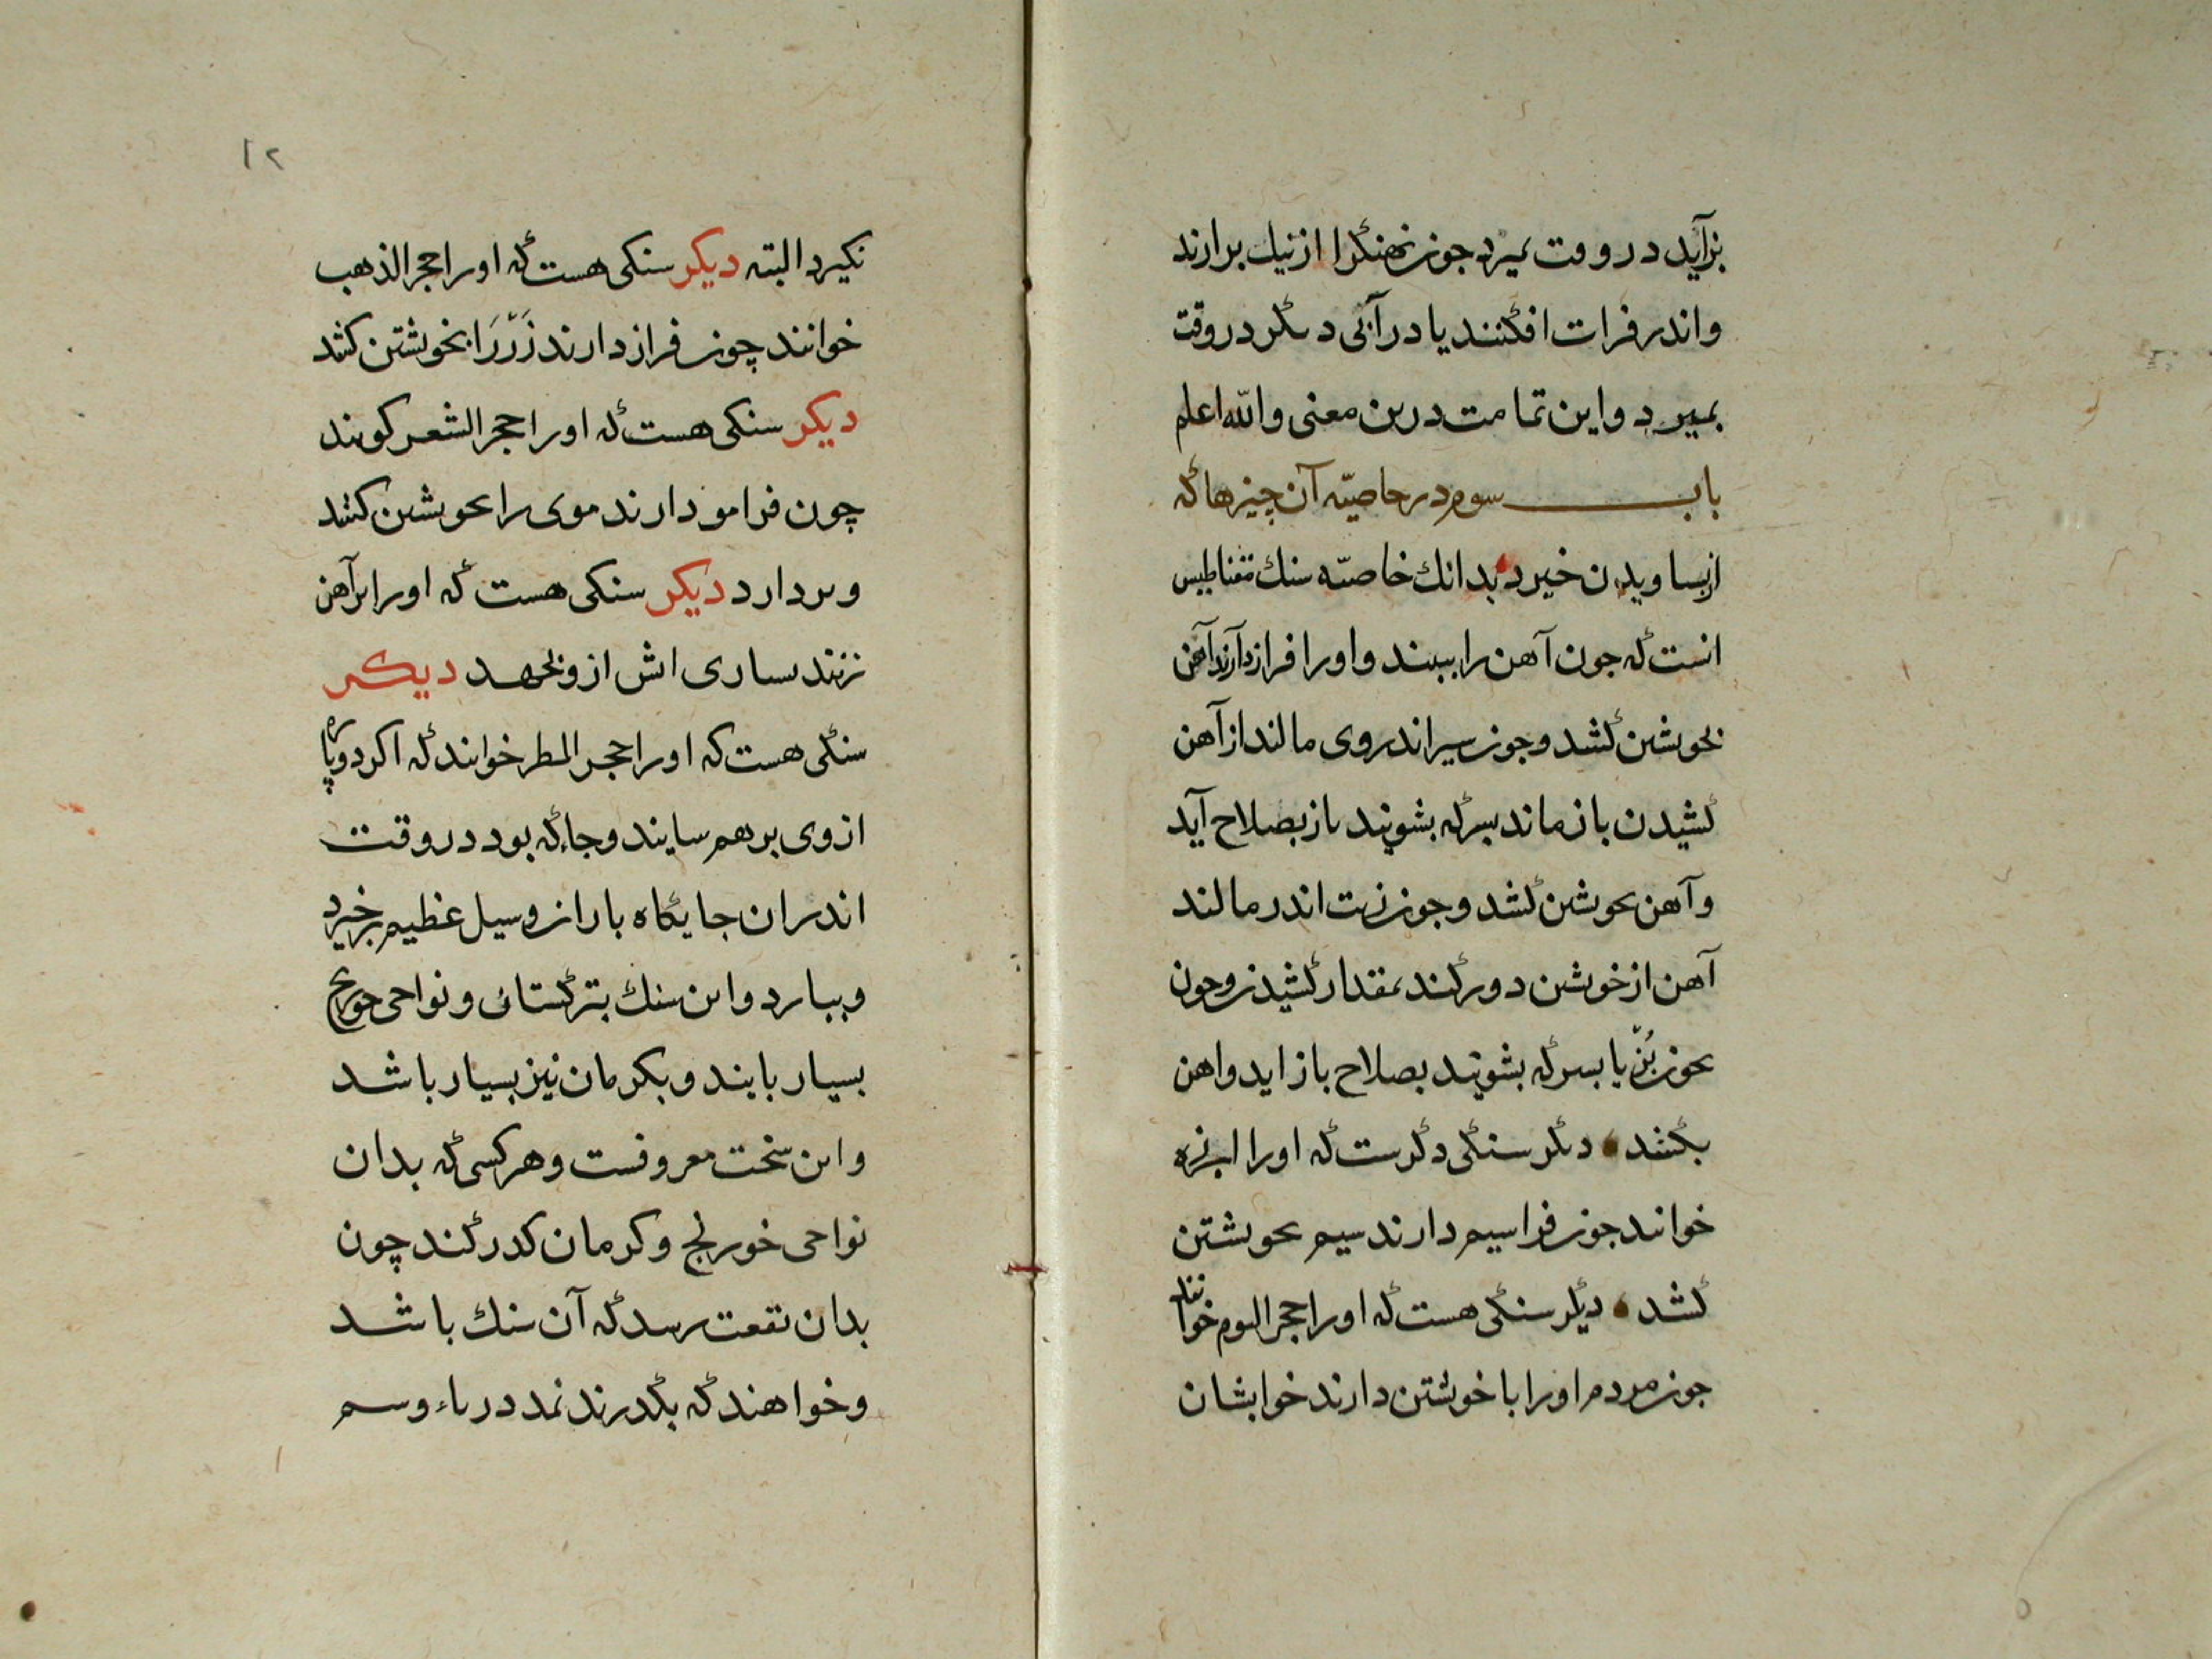 بزآید در وقت بمیرد جون نهنكرا از نیل برارند
واندر فرات افكنند یا در آبی دیكر در وقت
بمیرد واین تمامت درین معنی والله اعلم
باب سوم در خاصیّه آن چیزها كه
از بساویدن خیزد بدانك خاصیّه سنك مغناطیس
انست كه جون آهن را ببیند واورا فراز دارند آهن
بخویشن كشد وجون سیر اندروی مالند از آهن
كشیدن باز ماند بسركه بشویند باز بصلاح آید
وآهن بخویشن كشد وجون زیت اندر مالند
آهن از خویشن دور كند بمقدار كشیدن وجون
بخون بُز یا بسركه بشویند بصلاح باز اید واهن
بكشد دیكر سنكی دكرست كه اورا
خوانند جون فرا سیم دارند سیم بخویشتن
كشد دیكر سنكی هست كه اورا حجر النوم خوانند
جون مردم اورا با خویشتن دارند خوابشان
۱۲
نكیرد البته دیكر سنكی هست كه اورا حجر الذهب
خوانند چون فراز دارند زَرّ رَا بخویشتن كشد
دیكر سنكی هست كه اورا حجر الشعر كویند
چون فرا مو دارند موی را بخویشن كشد
وبردارد دیكر سنكی هست كه اورا بر آهن
زنند اش ازو بجهد دیكر
سنكی هست كه اورا حجر المطر خوانند كه اكر دو پاره
از وی بر هم سایند وجاء كه بود در وقت
اندران جایكاه باران وسیل عظیم برخیزد
وببارد واین سنك بتركستان ونواحی
بسیار یابند وبكرمان نیز بسیار باشد
واین سخت معروفست وهر كسی كه بدان
نواحی وكرمان كذر كند چون
بدان بقعت رسد كه آن سنك باشد
وخواهند كه بكذرند نمد در باء وسم